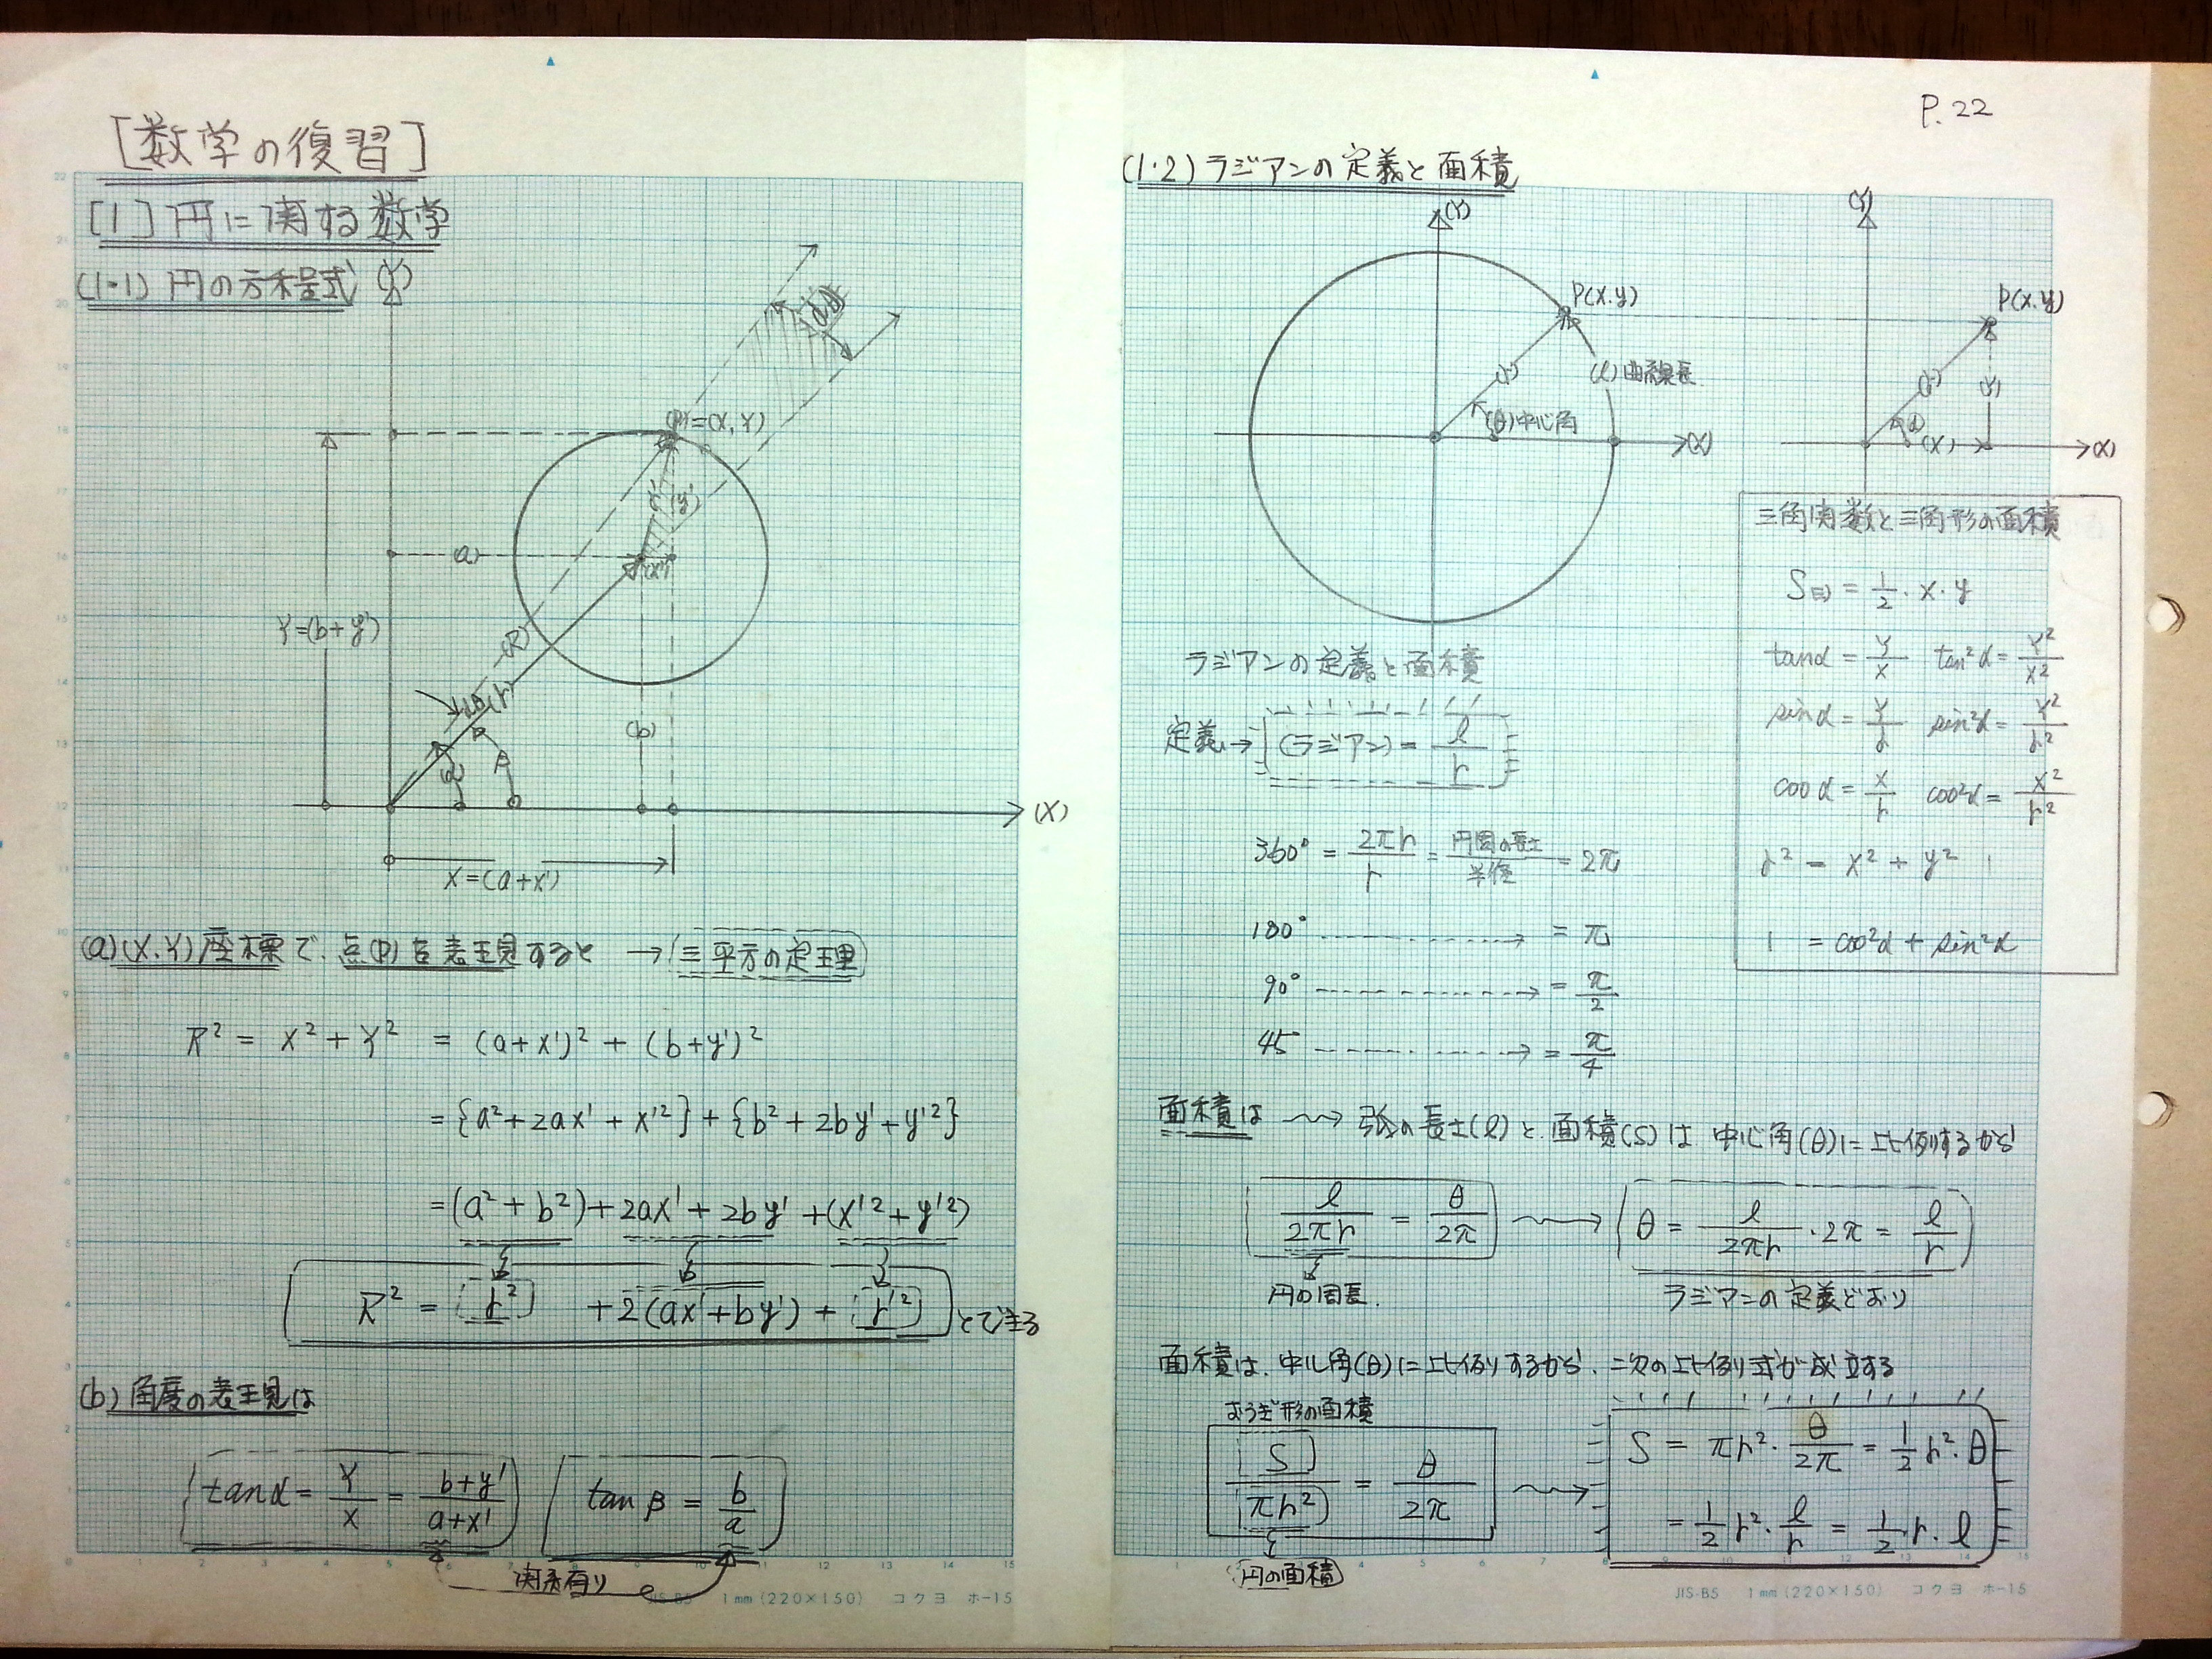 [数学の復習]
[1] 円に関する数学
(1・1) 円の方程式
(Y)
(P)=(X, Y)
r'
(y')
(x')
(a)
Y=(b+y')
(R)
(r)
(b)
α
β
(X)
X=(a+x')
(a) (X,Y)座標で、点(P)を表現すると → 三平方の定理
R² = X² + Y² = (a+x')² + (b+y')²
= {a²+2ax'+x'²} + {b²+2by'+y'²}
= (a²+b²)+2ax'+2by'+(x'²+y'²)
R² = r² +2(ax'+by') + r'² とできる
(b) 角度の表現は
tanα = Y/X = (b+y')/(a+x') tanβ = b/a
関係有り
JIS-B5 1mm (220×150) コクヨ ホ-15
P. 22
(1・2) ラジアンの定義と面積
(Y)
P(x.y)
(r)
(ℓ)曲線長
(θ)中心角
(X)
(Y)
P(x.y)
(r)
(y)
α
(x)
(X)
三角関数と三角形の面積
S三) = 1/2・x・y
tanα = y/x tan²α = y²/x²
sinα = y/r sin²α = y²/r²
cosα = x/r cos²α = x²/r²
r² = x² + y²
1 = cos²α + sin²α
ラジアンの定義と面積
定義→ (ラジアン) = ℓ/r
360° = 2πr/r = 円周の長さ/半径 = 2π
180° → = π
90° → = π/2
45° → = π/4
面積は 〜→ 弧の長さ(ℓ)と、面積(S)は、中心角(θ)に比例するから
ℓ/2πr = θ/2π 〜→ θ = ℓ/2πr・2π = ℓ/r
円の周長. ラジアンの定義どおり
面積は、中心角(θ)に比例するから、二次の比例式が成立する
おうぎ形の面積
S/πr² = θ/2π 〜→ S = πr²・θ/2π = 1/2 r²・θ
= 1/2 r²・ℓ/r = 1/2 r・ℓ
円の面積
JIS-B5 1mm (220×150) コクヨ ホ-15